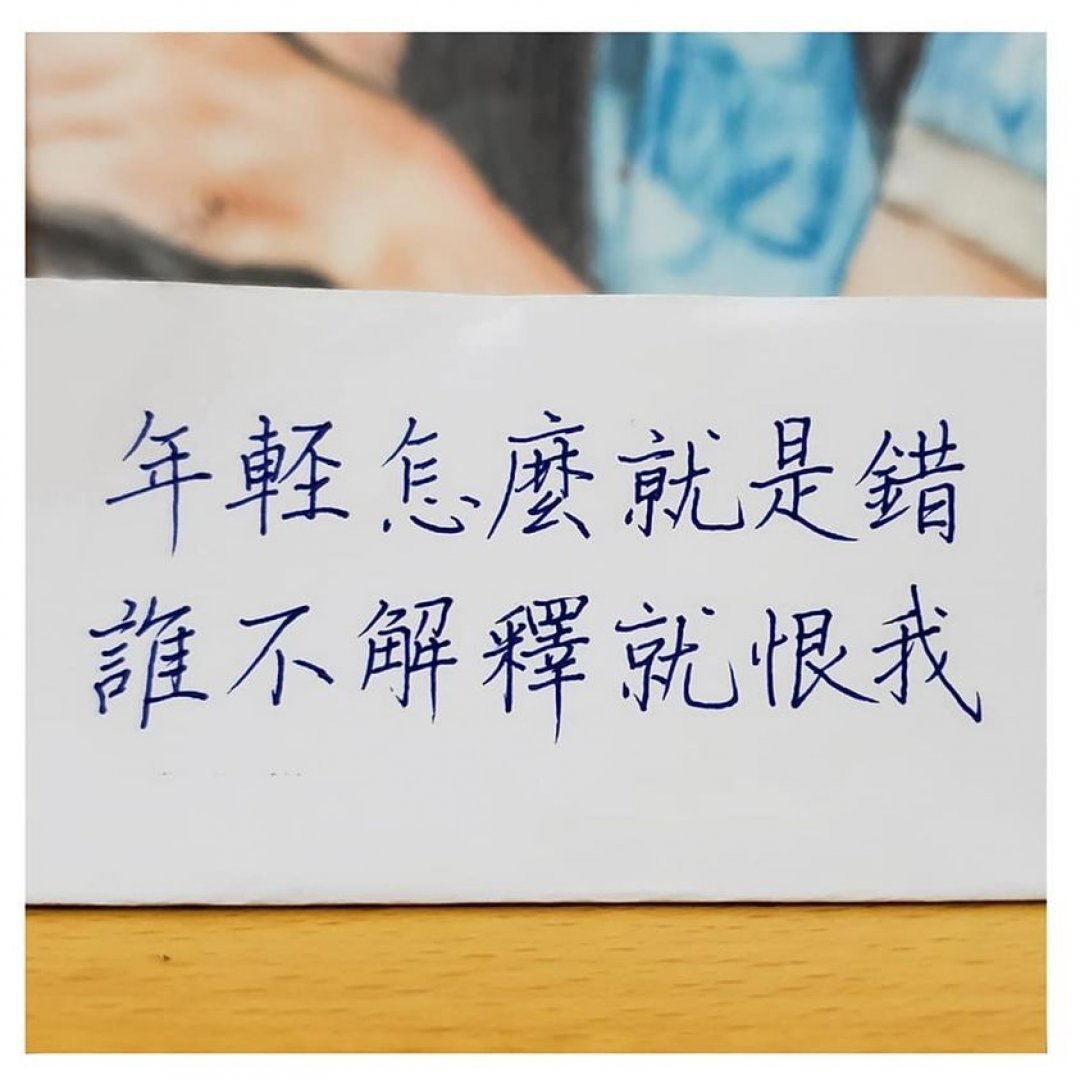 年輕怎麼就是錯
誰不解釋就恨我